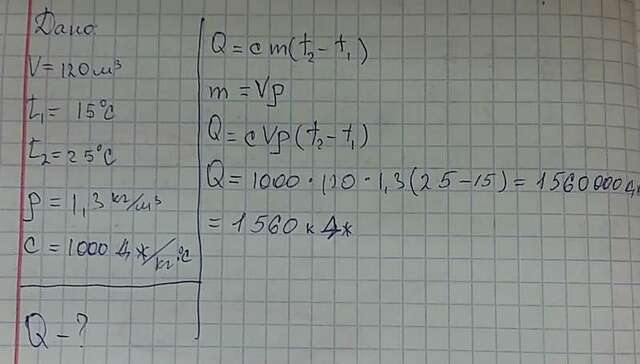 Дано:
V = 120 м³
t₁ = 15°C
t₂ = 25°C
ρ = 1,3 кг/м³
c = 1000 Дж/кг°C
Q - ?
Q = cm(t₂ - t₁)
m = Vρ
Q = cVρ(t₂ - t₁)
Q = 1000 · 120 · 1,3 (25 - 15) = 1560000 Дж
= 1560 кДж